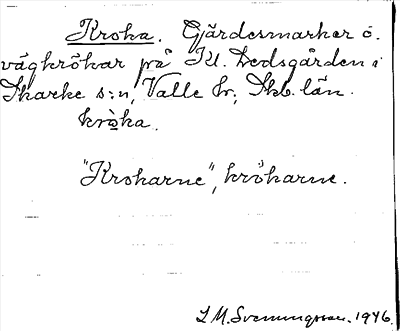 Kroka. Gärdesmarker o.
vägkrökar på Kl. Dedsgården i
Skarke s:n, Valle hr, Skb. län.
kròka.
"Krokarne", krökarne.
L M. Svenungsson. 1946.